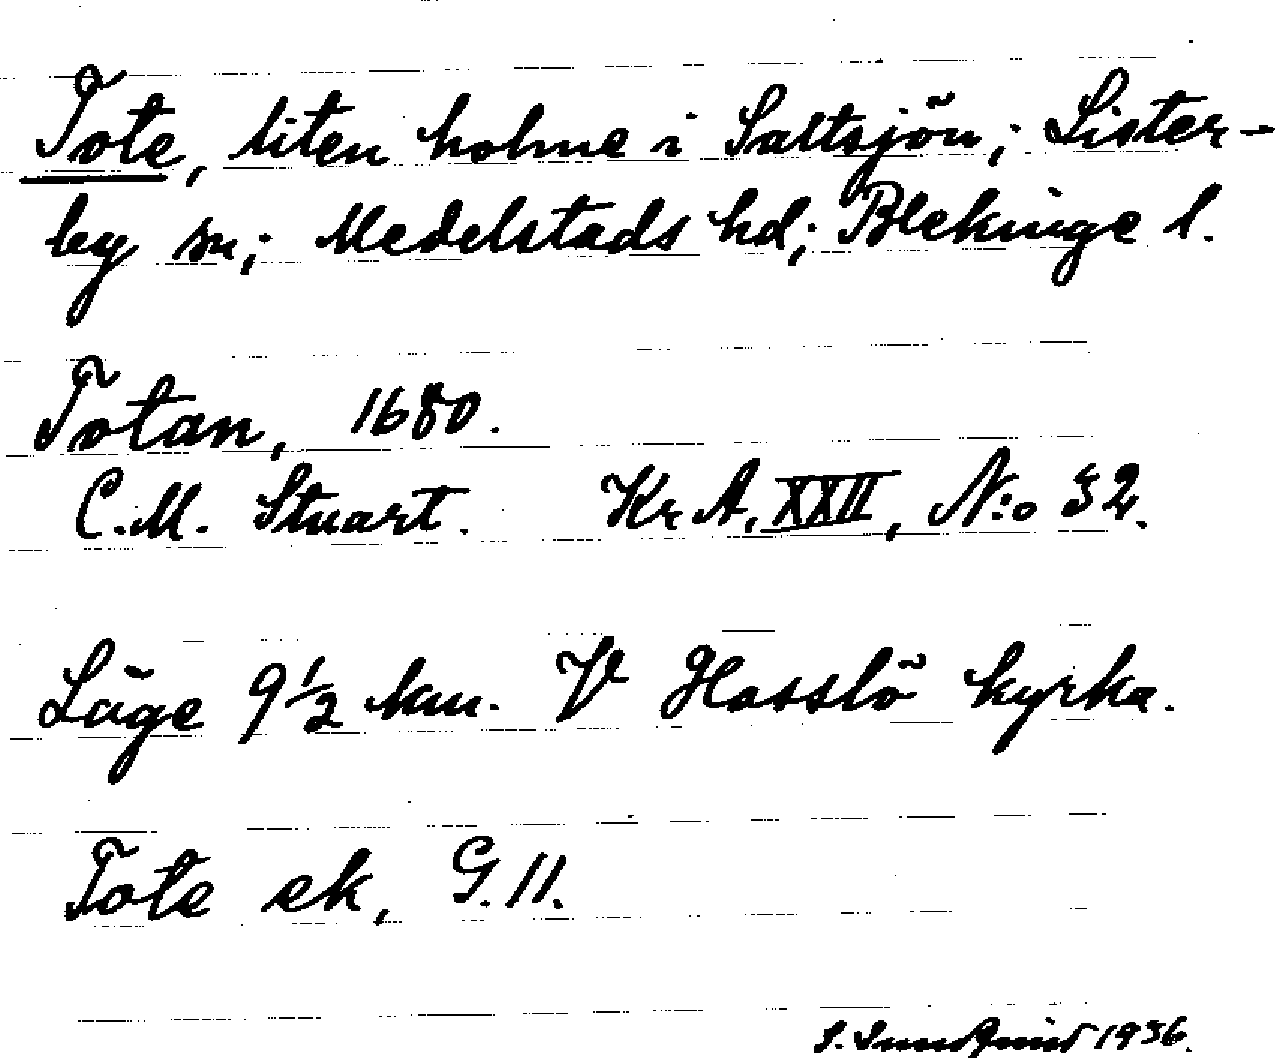 Tote, liten holme i Saltsjön; Lister-
by sn; Medelstads hd; Blekinge l.
Totan, 1680.
C.M. Stuart. Kr A, XXII, N:o 32.
Läge 9 1/2 km. V Hasslö kyrka.
Tote ek, G. 11.
S. Sundquist 1936.